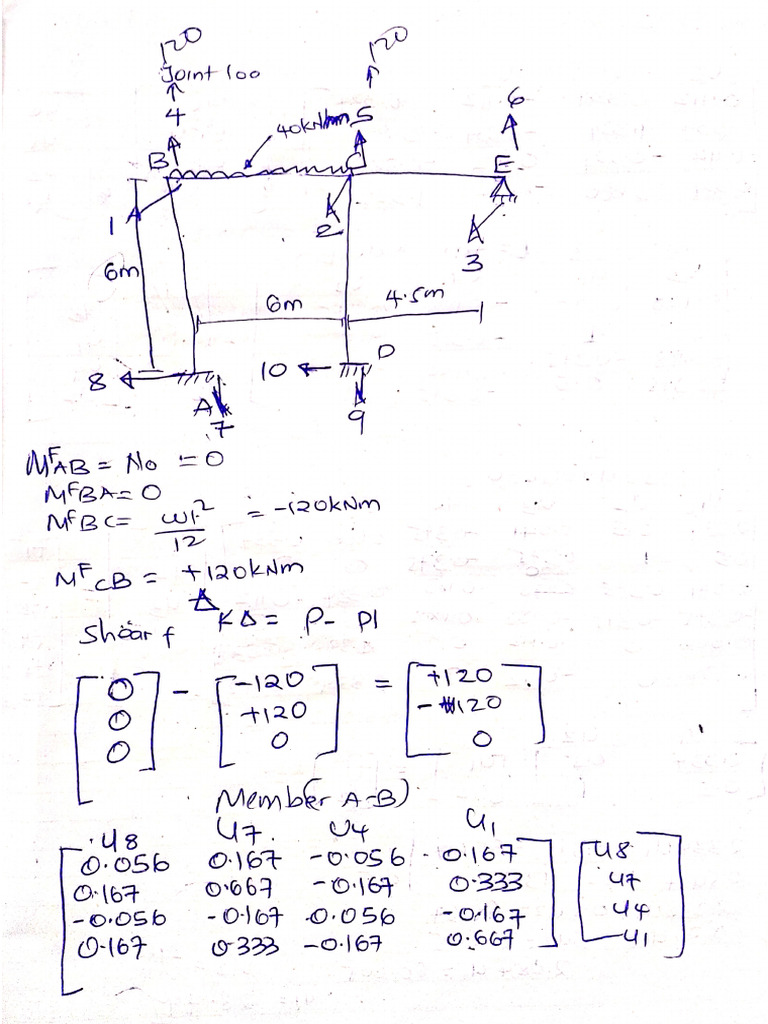 120
120
Joint loo
4
5
6
40kN/m
B
C
E
1
2
3
6m
6m
4.5m
8
10
D
A
7
9
MFAB = No = 0
MFBA = 0
MFBC = wl² / 12 = -120kNm
MFCB = +120kNm
Shear f
KΔ = P - Pl
[0 0 0] - [-120 +120 0] = [+120 -120 0]
Member (A-B)
U8 U7 U4 U1
0.056 0.167 -0.056 0.167 U8
0.167 0.667 -0.167 0.333 U7
-0.056 -0.167 0.056 -0.167 U4
0.167 0.333 -0.167 0.667 U1